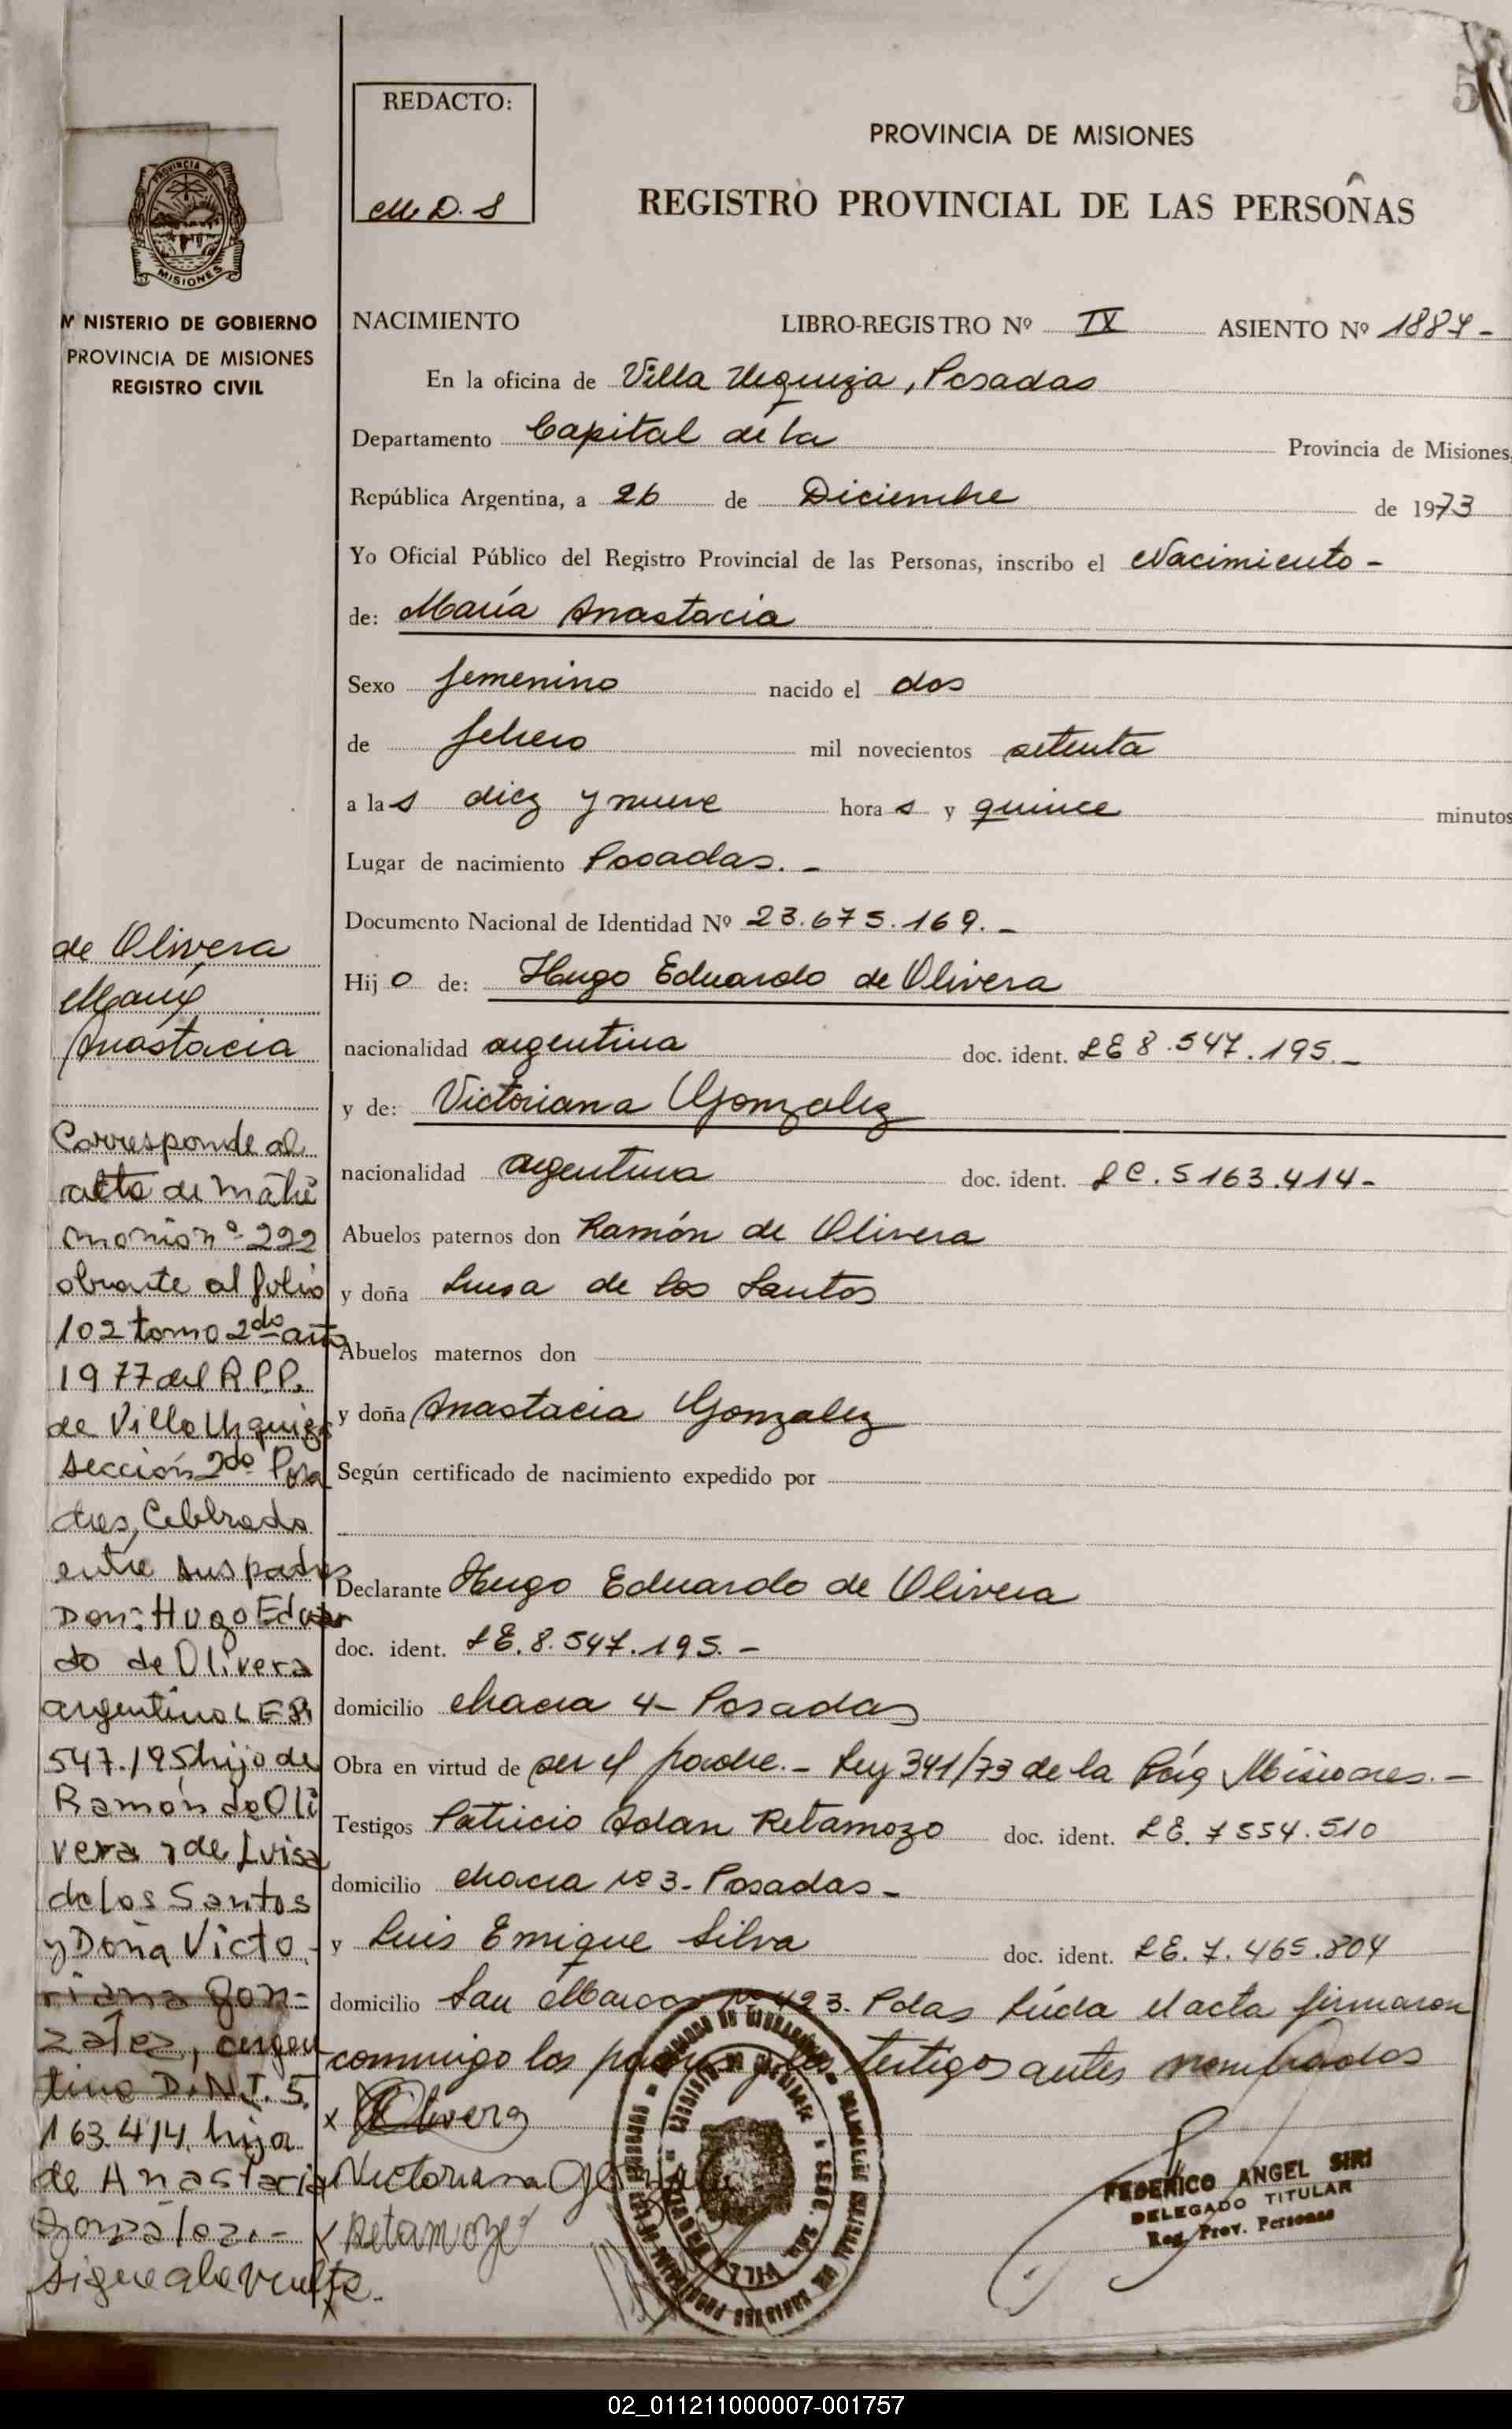 REDACTO:
M. D. S
PROVINCIA DE MISIONES
REGISTRO PROVINCIAL DE LAS PERSONAS
PROVINCIA DE
MISIONES
NISTERIO DE GOBIERNO
PROVINCIA DE MISIONES
REGISTRO CIVIL
NACIMIENTO LIBRO-REGISTRO Nº IX ASIENTO Nº 1887-
En la oficina de Villa Urquiza, Posadas
Departamento Capital de la Provincia de Misiones,
República Argentina, a 26 de Diciembre de 1973
Yo Oficial Público del Registro Provincial de las Personas, inscribo el Nacimiento -
de: María Anastacia
Sexo femenino nacido el dos
de febrero mil novecientos setenta
a las diez y nueve horas y quince minutos
Lugar de nacimiento Posadas. -
Documento Nacional de Identidad Nº 23.675.169. -
Hijo de: Hugo Eduardo de Olivera
nacionalidad argentina doc. ident. LE 8.547.195. -
y de: Victoriana Gonzalez
nacionalidad argentina doc. ident. LC. 5163.414-
Abuelos paternos don Ramón de Olivera
y doña Luisa de los Santos
Abuelos maternos don
y doña Anastacia Gonzalez
Según certificado de nacimiento expedido por
Declarante Hugo Eduardo de Olivera
doc. ident. LE. 8.547.195. -
domicilio chacra 4- Posadas
Obra en virtud de ser el padre. - Ley 341/73 de la Misiones. -
Testigos Patricio Adan Retamozo doc. ident. LE. 7554.510
domicilio chacra nº 3- Posadas -
y Luis Enrique Silva doc. ident. LE. 7.465.804
domicilio San Marcos Nº 423- Pdas Leída el acta firmaron
conmigo los padres y los testigos antes nombrados
x Olivera
Victoriana Gonzalez
x Retamozo
FEDERICO ANGEL SIRI
DELEGADO TITULAR
Reg. Prov. Personas
de Olivera
María
Anastacia
Corresponde al
acta de matri
monio nº 292
obrante al folio
102 tomo 2do año
1977 del R.P.P.
de Villa Urquiza
sección 2do Posa
das, Celebrado
entre sus padres
Don: Hugo Eduar
do de Olivera
argentino LE 8.
547.195 hijo de
Ramón de Oli
vera y de Luisa
de los Santos
y Doña Victo-
riana Gon=
zález, argen
tina D.N.I. 5.
163.414, hija
de Anastacia
González. -
sigue a la vuelta.
02_011211000007-001757